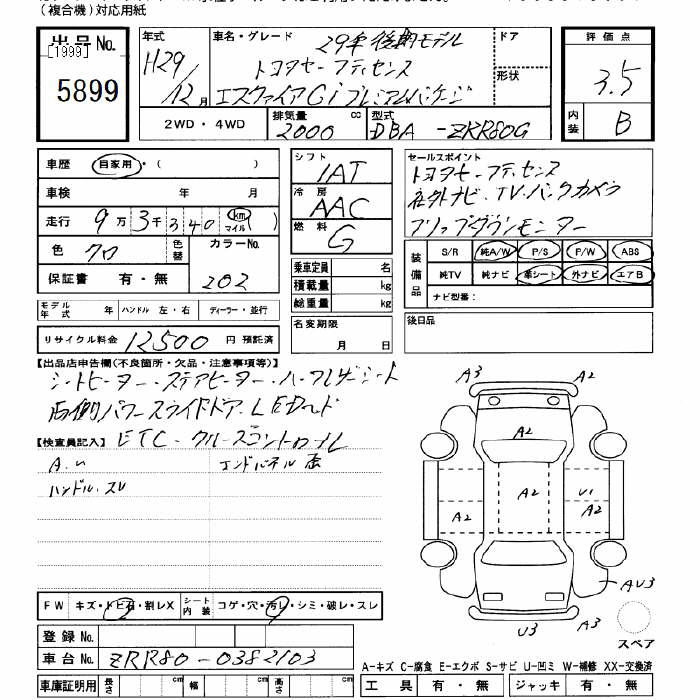 (複合機)対応用紙
出品 No. 年式 車名・グレード 29年後期モデル ドア 評価点
[1999] H29 トヨタセーフティセンス 形状 3.5
5899 12月 エスクァイアGiプレミアムパッケージ
2WD・4WD 排気量 cc 2000 型式 DBA -ZRR80G 内装 B
車歴 自家用・( ) シフト IAT セールスポイント
トヨタセーフティセンス
車検 年 月 冷房 AAC 社外ナビ・TV・バックカメラ
走行 9万3千340 km マイル 燃料 G フリップダウンモニター
色 クロ 色替 カラーNo. 202
装備品 S/R 純A/W P/S P/W ABS
保証書 有・無 乗車定員 名 純TV 純ナビ 革シート 外ナビ エアB
積載量 kg ナビ型番:
総重量 kg
モデル年式 年 ハンドル 左・右 ディーラー・並行
名変期限 月 日 後日品
リサイクル料金 12500 円 預託済
【出品店申告欄(不良箇所・欠品・注意事項等)】
シートヒーター・ステアヒーター・ハーフレザーシート
両側パワースライドドア・LEDヘッド
【検査員記入】 ETC・クルーズコントロール
A.U エンドパネル歪
ハンドル・スレ
A3 A2
A2
A2 U1
A2 A2
AU3
U3 A3
スペア
FW キズ・トビ石・割レX シート内装 コゲ・穴・汚レ・シミ・破レ・スレ
登録 No.
車台 No. ZRR80-0382103
A-キズ C-腐食 E-エクボ S-サビ U-凹ミ W-補修 XX-交換済
車庫証明用 長さ cm 幅 cm 高さ cm 工具 有・無 ジャッキ 有・無